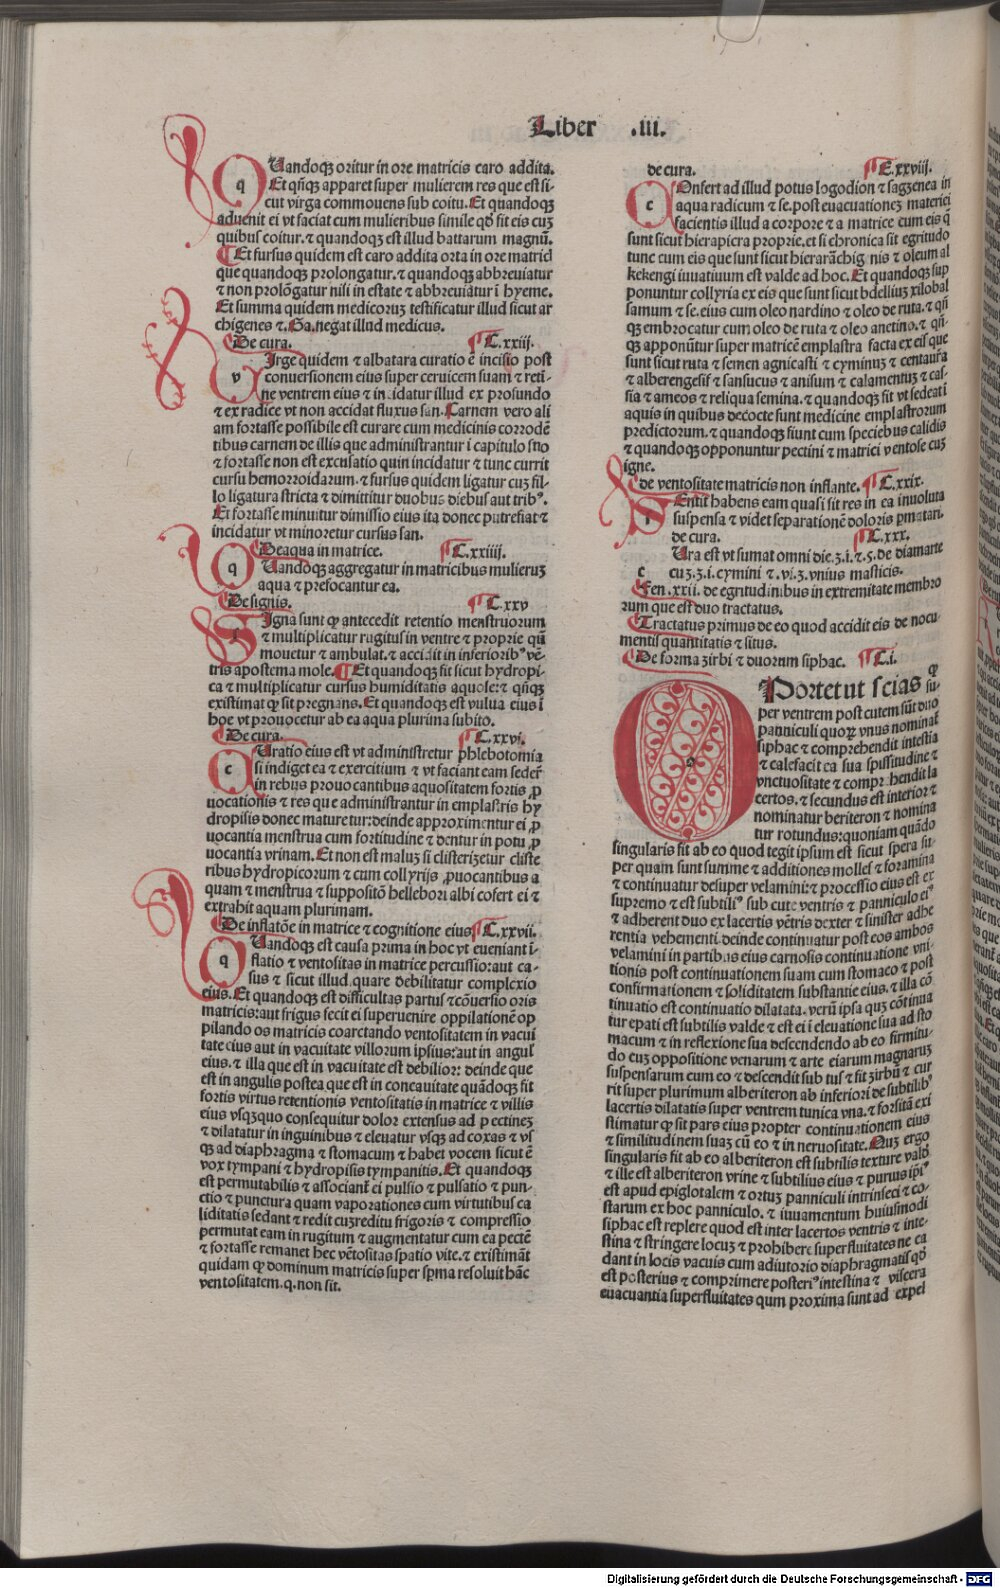 Liber .iii.
QUandoqꝫ oritur in ore matricis caro addita.
Et qn̄qꝫ apparet super mulierem res que est si-
cut virga commouens sub coitu. Et quandoqꝫ
aduenit ei vt faciat cum mulieribus simile qđ fit eis cuꝫ
quibus coitur. ⁊ quandoqꝫ est illud battarum magnū.
Et fursus quidem est caro addita orta in ore matricꝭ
que quandoqꝫ prolongatur. ⁊ quandoqꝫ abbreuiatur
⁊ non prolōgatur nisi in estate ⁊ abbreuiatur ī hyeme.
Et summa quidem medicoruꝫ testificatur illud sicut ar
chigenes ⁊. Ga. negat illud medicus.
De cura. C.xxiii.
Virge quidem ⁊ albatara curatio ē incisio post
conuersionem eius super ceruicem suam ⁊ reti-
ne ventrem eius ⁊ incidatur illud ex profundo
⁊ ex radice vt non accidat fluxus san. Carnem vero ali
am fortasse possibile est curare cum medicinis corrodē
tibus carnem de illis que administrantur ī capitulo suo
⁊ fortasse non est excusatio quin incidatur ⁊ tunc currit
cursu hemorroidarum. ⁊ fursus quidem ligatur cuꝫ fil-
lo ligatura stricta ⁊ dimittitur duobus diebus aut tribꝰ.
Et fortasse minuitur dimissio eius ita donec putrefiat ⁊
incidatur vt minoretur cursus san.
De aqua in matrice. C.xxiiii.
QUandoqꝫ aggregatur in matricibus mulieruꝫ
aqua ⁊ prefocantur ea.
De signis. C.xxv
SIgna sunt ꝙ antecedit retentio menstruorum
⁊ multiplicatur rugitus in ventre ⁊ proprie qn̄
mouetur ⁊ ambulat. ⁊ accidit in inferioribꝰ vē-
tris apostema mole. Et quandoqꝫ fit sicut hydropi-
ca ⁊ multiplicatur cursus humiditatis aquose: ⁊ qn̄qꝫ
existimat ꝙ sit pregnans. Et quandoqꝫ est vulua eius ī
hoc vt prouocetur ab ea aqua plurima subito.
De cura. C.xxvi.
CUratio eius est vt administretur phlebotomia
si indiget ea ⁊ exercitium ⁊ vt faciant eam sedere
in rebus prouocantibus aquositatem fortis ꝓ
uocationis ⁊ res que administrantur in emplastris hy
dropisis donec mature tur: deinde approximentur ei ꝓ
uocantia menstrua cum fortitudine ⁊ dentur in potu ꝓ
uocantia vrinam. Et non est maluꝫ si clisterizetur cliste
ribus hydropicorum ⁊ cum collyrijs ꝓuocantibus a
quam ⁊ menstrua ⁊ suppositō hellebori albi cōfert ei ⁊
extrahit aquam plurimam.
De inflatōe in matrice ⁊ cognitione eius C.xxvii.
QUandoqꝫ est causa prima in hoc vt eueniant ī-
flatio ⁊ ventositas in matrice percussio: aut ca-
sus ⁊ sicut illud. quare debilitatur complexio
eius. Et quandoqꝫ est difficultas partus ⁊ cōuersio oris
matricis: aut frigus fecit ei superuenire oppilationē op
pilando os matricis coarctando ventositatem in vacui
tate eius aut in vacuitate villorum ipsius: aut in angul
eius. ⁊ illa que est in vacuitate est debilior: deinde que
est in angulis postea que est in concauitate quādoqꝫ fit
fortis virtus retentionis ventositatis in matrice ⁊ villis
eius vsqꝫquo consequitur dolor extensus ad pectineꝫ
⁊ dilatatur in inguinibus ⁊ eleuatur vsqꝫ ad coxas ⁊ vs
qꝫ ad diaphragma ⁊ stomacum ⁊ habet vocem sicut ē
vox tympani ⁊ hydropisis tympanitis. Et quandoqꝫ
est permutabilis ⁊ associant ei pulsio ⁊ pulsatio ⁊ pun-
ctio ⁊ punctura quam vaporationes cum virtutibus ca
liditatis sedant ⁊ redit cuꝫ reditu frigoris ⁊ compressio
permutat eam in rugitum ⁊ augmentatur cum ea pectē
⁊ fortasse remanet hec vētositas spatio vite. ⁊ existimāt
quidam ꝙ dominum matricis super spma resoluit hāc
ventositatem. q. non sit.
de cura. C.xxviii.
COnfert ad illud potus logodion ⁊ sagzenea in
aqua radicum ⁊ se. post euacuationeꝫ materiei
facientis illud a corpore ⁊ a matrice cum eis q̄
sunt sicut hierapicra proprie. et si chronica sit egritudo
tunc cum eis que sunt sicut hierarāchigenis ⁊ oleum al
kekengi iuuatiuum est valde ad hoc. Et quandoqꝫ sup
ponuntur collyria ex eis que sunt sicut bdellius xilobal
samum ⁊ se. eius cum oleo nardino ⁊ oleo de ruta. ⁊ qn̄
qꝫ embrocatur cum oleo de ruta ⁊ oleo anetino. ⁊ qn̄
qꝫ apponūtur super matricē emplastra facta ex eis que
sunt sicut ruta ⁊ semen agnicasti ⁊ cyminuꝫ ⁊ centaura
⁊ alberengesif ⁊ sansucus ⁊ anisum ⁊ calamentuꝫ ⁊ cas-
sia ⁊ ameos ⁊ reliqua semina. ⁊ quandoqꝫ fit vt sedeat ī
aquis in quibus decocte sunt medicine emplastrorum
predictorum. ⁊ quandoqꝫ fiunt cum speciebus calidis
⁊ quandoqꝫ opponuntur pectini ⁊ matrici ventose cuꝫ
igne.
de ventositate matricis non inflante. C.xxix.
SEntit habens eam quasi sit res in ea inuoluta
suspensa ⁊ videt separationē doloris pmatari.
de cura. C.xxx.
CUra est vt sumat omni die.ʒ.i.⁊.5. de diamarte
cuꝫ.ʒ.i. cymini ⁊.vi.ʒ. vnius masticis.
Fen.xxii. de egritudinibus in extremitate membro
rum que est duo tractatus.
Tractatus primus de eo quod accidit eis de nocu
mentis quantitatis ⁊ situs.
De forma zirbi ⁊ duorum siphac. C.i.
OPortet ut scias ꝙ
super ventrem post cutem sūt duo
panniculi quoꝝ vnus nominat
siphac ⁊ comprehendit intestia
⁊ calefacit ea sua spissitudine ⁊
vnctuositate ⁊ comprehendit la
certos. ⁊ secundus est interior ⁊
nominatur beriteron ⁊ nomina
tur rotundus: quoniam quādo
singularis fit ab eo quod tegit ipsum est sicut spera su-
per quam sunt summe ⁊ additiones molles ⁊ foramina
⁊ continuatur desuper velamini: ⁊ processio eius est ex
supremo ⁊ est subtiliꝰ sub cute ventris ⁊ panniculo eiꝰ
⁊ adherent duo ex lacertis vētris dexter ⁊ sinister adhe
rentia vehementi. deinde continuatur post eos ambos
velamini in partibus eius carnosis continuatione vni-
tionis post continuationem suam cum stomaco ⁊ post
confirmationem ⁊ soliditatem substantie eius. ⁊ illa cō
tinuatio est continuatio dilatata. verū ipsa quꝫ cōtinua
tur epati est subtilis valde ⁊ est ei ī eleuatione sua ad sto
macum ⁊ in reflexione sua descendendo ab eo firmitu-
do cuꝫ oppositione venarum ⁊ arteriarum magnaruꝫ
suspensarum cum eo ⁊ descendit subtus ⁊ fit zirbū ⁊ cur
rit super plurimum alberiteron ab inferiori de subtilibꝰ
lacertis dilatatis super ventrem tunica vna. ⁊ forsitā exi
stimatur ꝙ sit pars eius propter continuationem eius
⁊ similitudinem suaꝫ cū eo ⁊ in neruositate. Quꝫ ergo
singularis fit ab eo alberiteron est subtilis texture valde
⁊ ille est alberiteron vrine ⁊ subtilius eius ⁊ purus ipsiꝰ
est apud epiglotalem ⁊ ortuꝫ panniculi intrinseci ⁊ co-
starum ex hoc panniculo. ⁊ iuuamentum huiusmodi
siphac est replere quod est inter lacertos ventris ⁊ inte-
stina ⁊ stringere locuꝫ ⁊ prohibere superfluitates ne ca
dant in locis vacuis cum adiutorio diaphragmatis qđ
est posterius ⁊ comprimere posteriꝰ intestina ⁊ viscera
euacuantia superfluitates qum proxima sunt ad expel
Digitalisierung gefördert durch die Deutsche Forschungsgemeinschaft - DFG